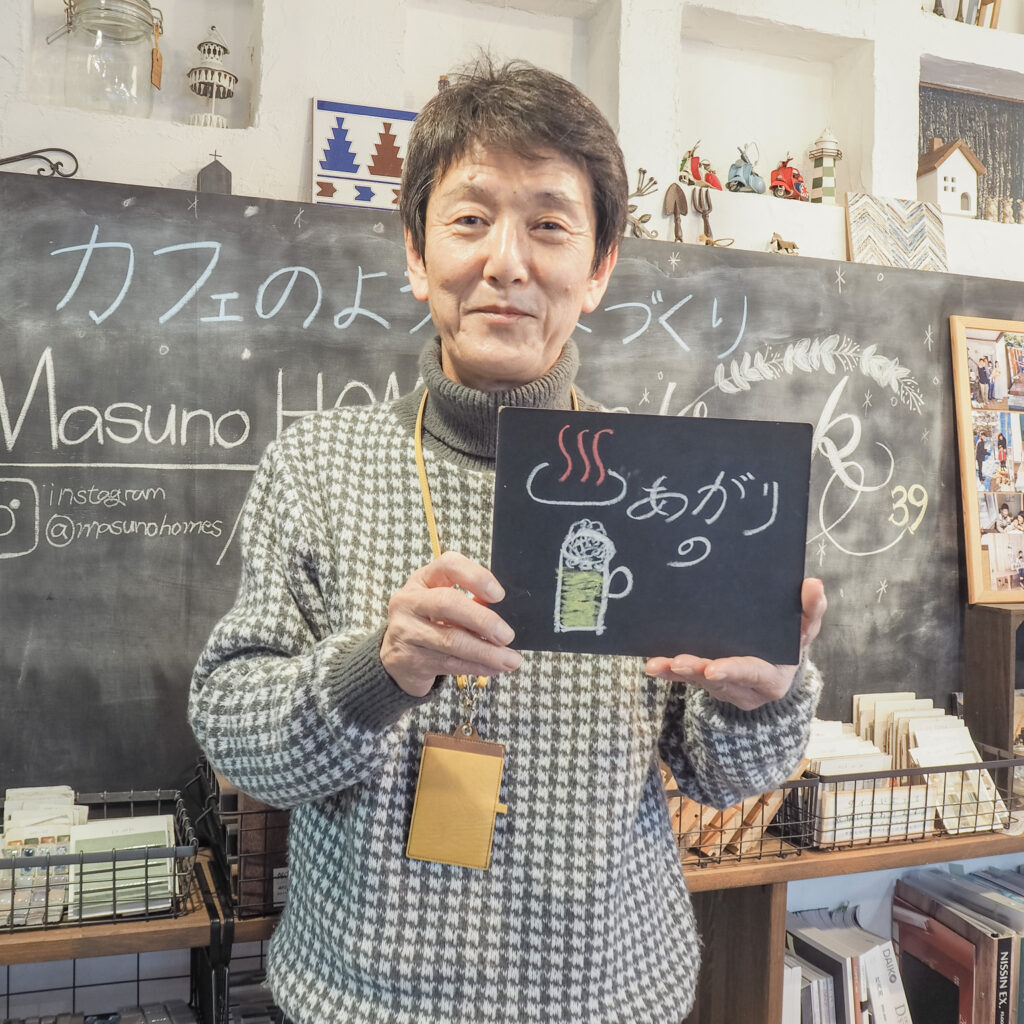 カフェのよ
づくり
Masuno HOM
instagram
@masunohomes
39
♨あがり
の
DAIKO
NISSIN EX.